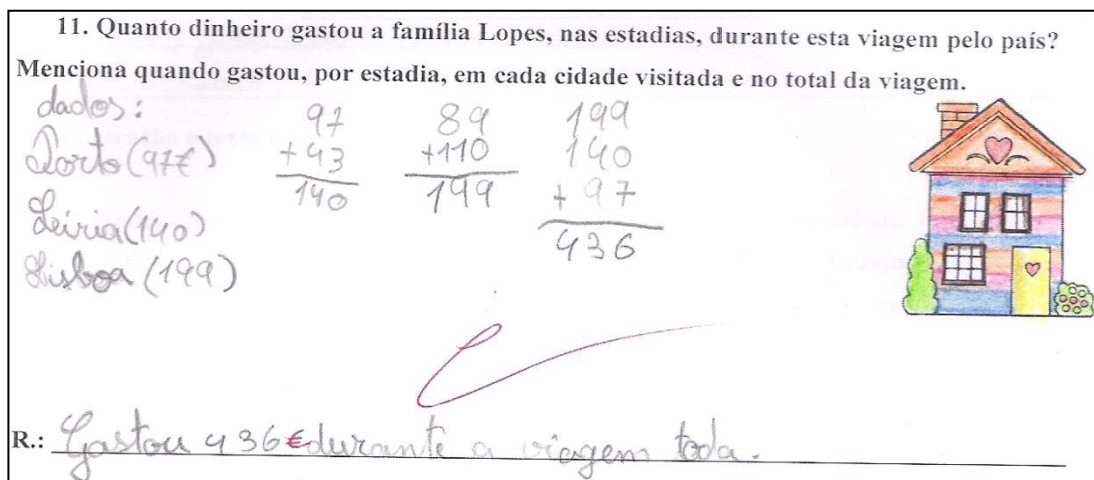 11. Quanto dinheiro gastou a família Lopes, nas estadias, durante esta viagem pelo país?
Menciona quando gastou, por estadia, em cada cidade visitada e no total da viagem.
dados:
Porto (97€)
Leiria (140)
Lisboa (199)
97
+43
140
89
+110
199
199
140
+97
436
R.: Gastou 436€ durante a viagem toda.